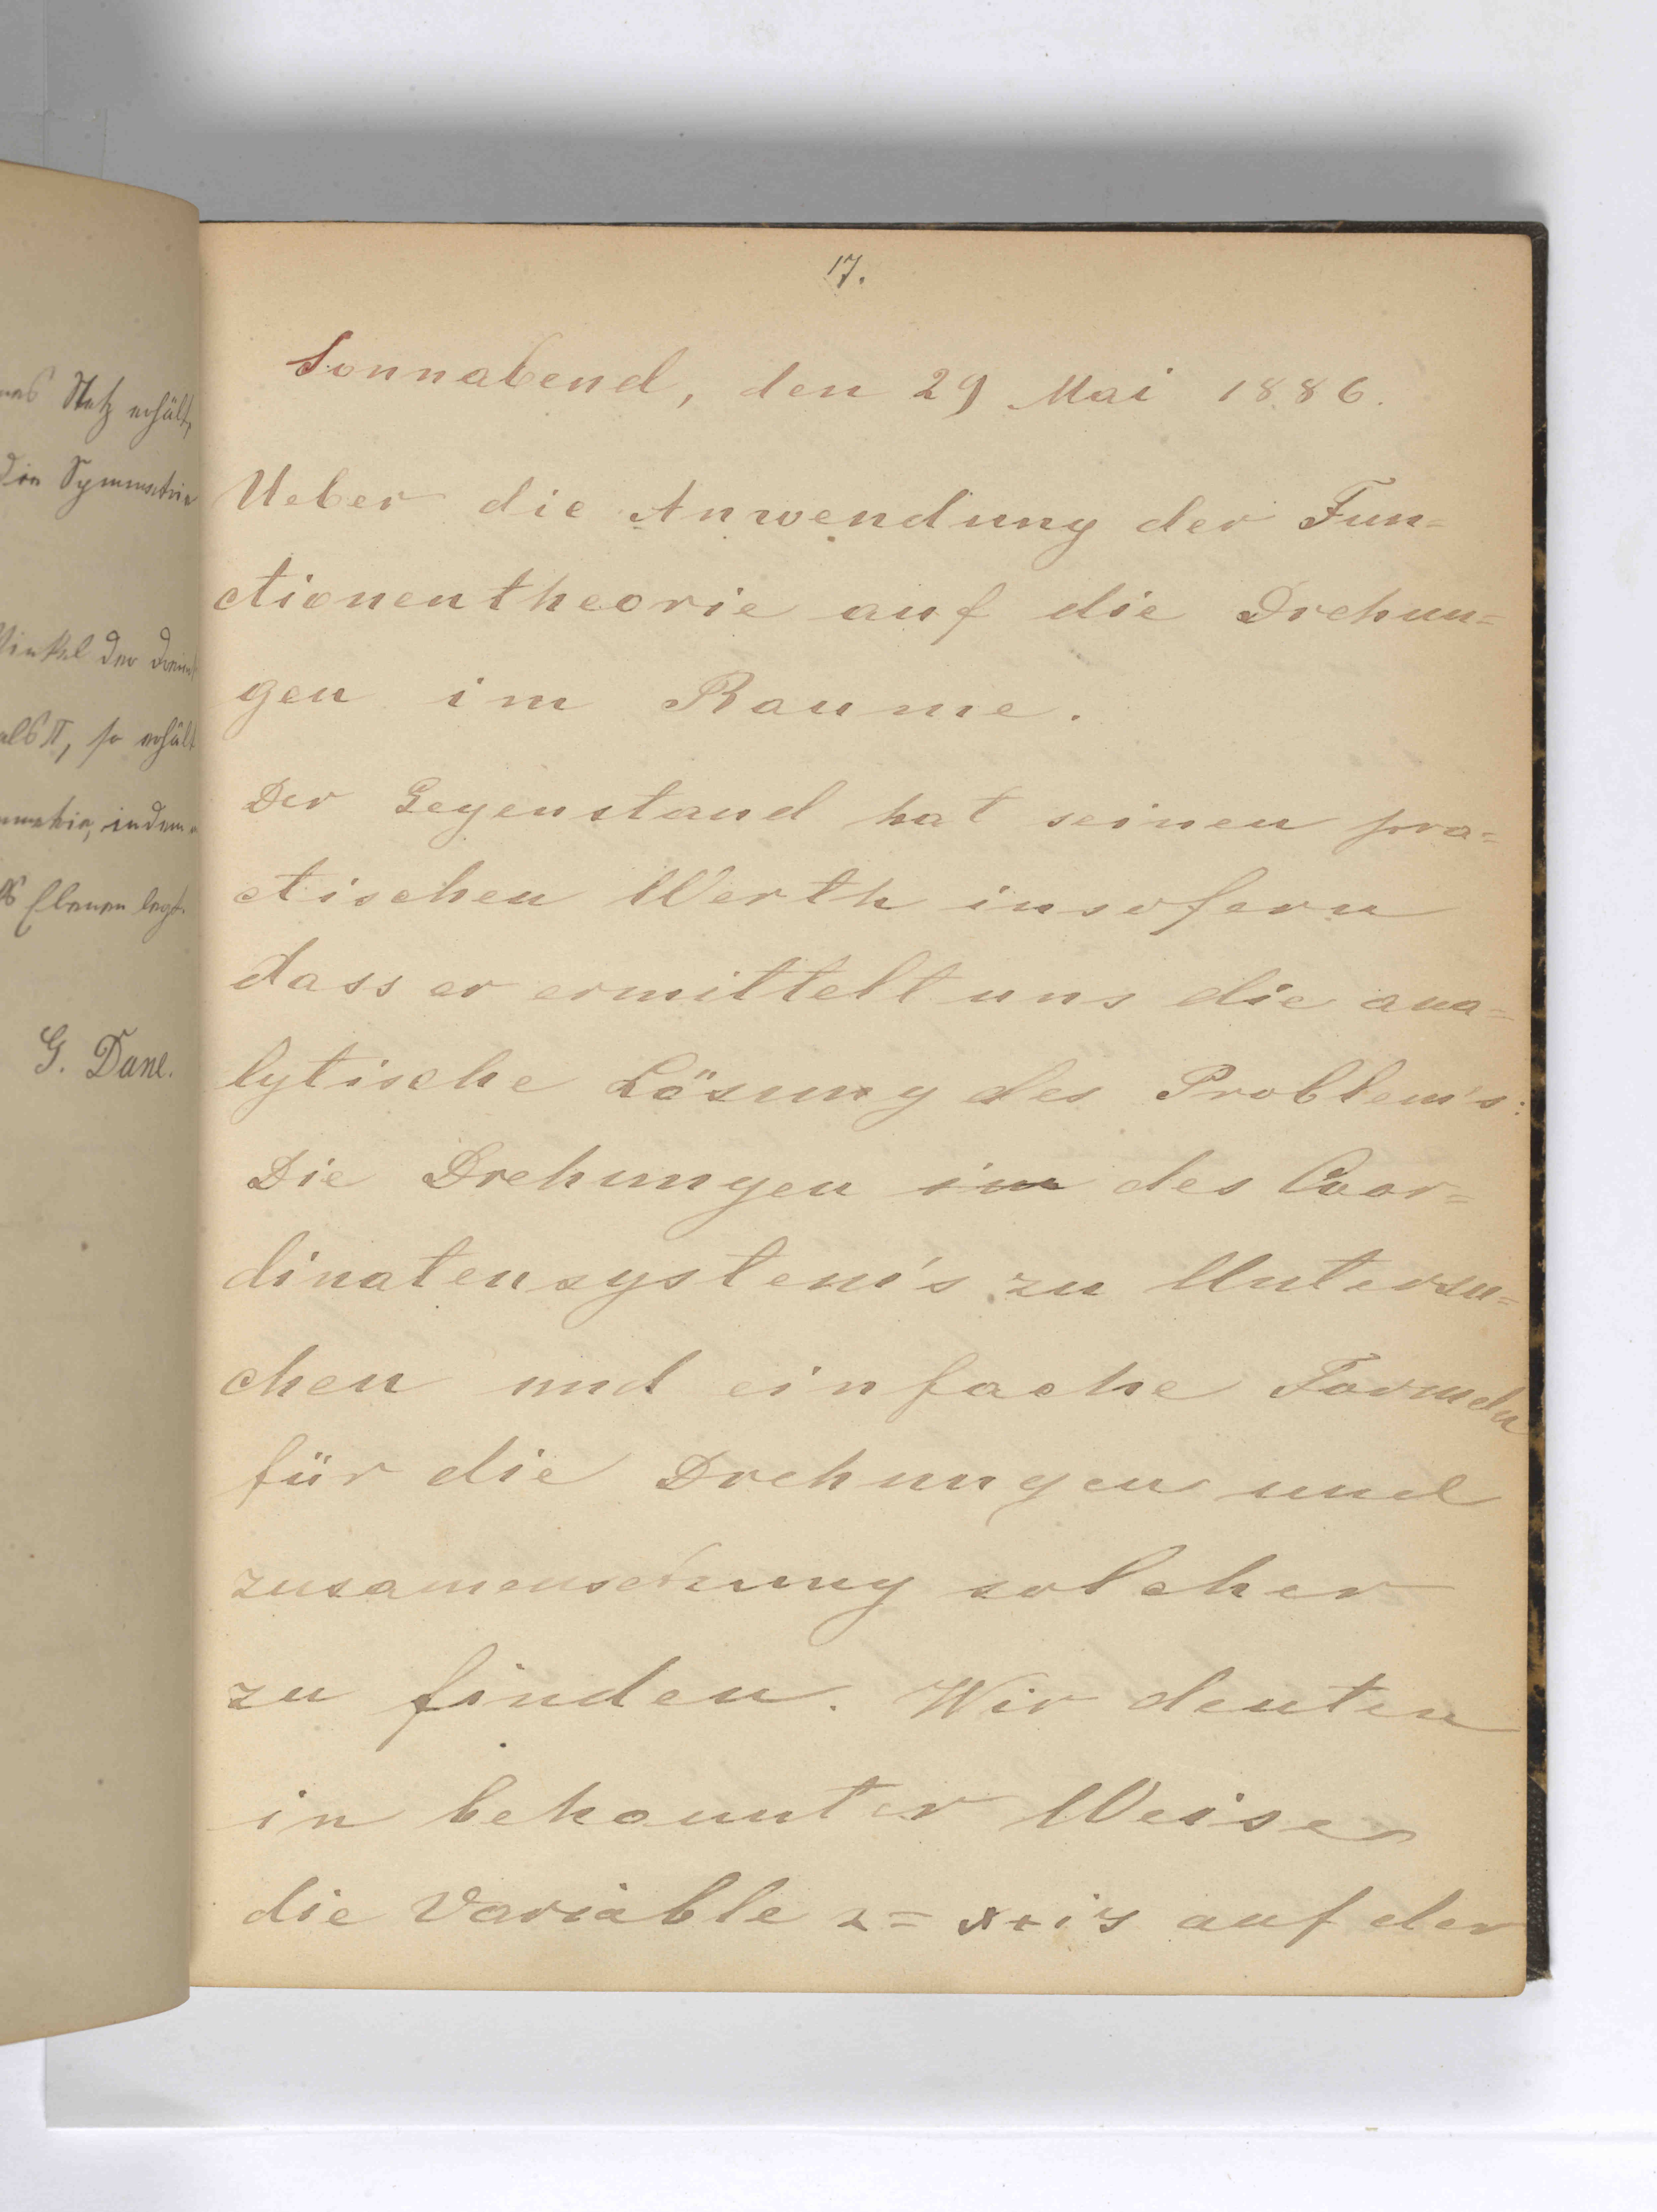 Satz erhält,
Die Symmetrie
Winkel der
als π, so erhält
indem
Ebenen legt.
G. Dane.
17.
Sonnabend, den 29 Mai 1886.
Ueber die Anwendung der Fun=
ctionentheorie auf die Drehun=
gen im Raume.
Der Gegenstand hat seinen pra=
ctischen Werth insofern
dass er ermittelt uns die ana=
lytische Lösung des Problem's:
Die Drehungen im des Coor=
dinatensystem's zu Untersu=
chen und einfache Formeln
für die Drehungen und
zusamensetzung solcher
zu finden. Wir deuten
in bekannter Weise
die Variable z = x+iy auf der